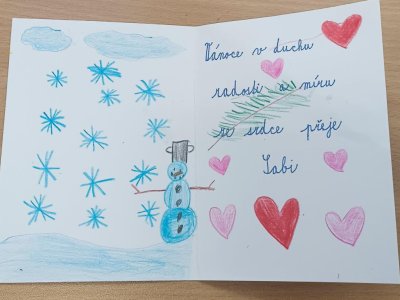 Vánoce v duchu
radosti a míru
ze srdce přeje
Sabi